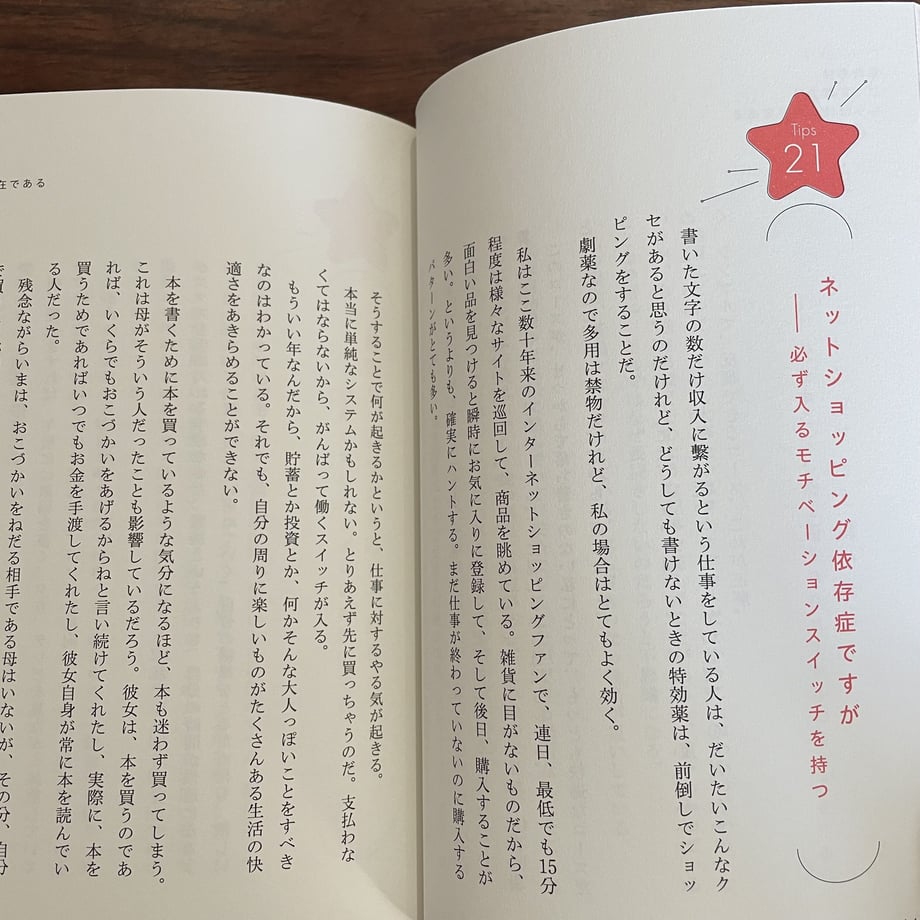 Tips
21
ネットショッピング依存症ですが
――必ず入るモチベーションスイッチを持つ
書いた文字の数だけ収入に繋がるという仕事をしている人は、だいたいこんなク
セがあると思うのだけれど、どうしても書けないときの特効薬は、前倒しでショッ
ピングをすることだ。
劇薬なので多用は禁物だけれど、私の場合はとてもよく効く。
私はここ数十年来のインターネットショッピングファンで、連日、最低でも15分
程度は様々なサイトを巡回して、商品を眺めている。雑貨に目がないものだから、
面白い品を見つけると瞬時にお気に入りに登録して、そして後日、購入することが
多い。というよりも、確実にハントする。まだ仕事が終わっていないのに購入する
パターンがとても多い。
そうすることで何が起きるかというと、仕事に対するやる気が起きる。
本当に単純なシステムかもしれない。とりあえず先に買っちゃうのだ。支払わな
くてはならないから、がんばって働くスイッチが入る。
もういい年なんだから、貯蓄とか投資とか、何かそんな大人っぽいことをすべき
なのはわかっている。それでも、自分の周りに楽しいものがたくさんある生活の快
適さをあきらめることができない。
本を書くために本を買っているような気分になるほど、本も迷わず買ってしまう。
これは母がそういう人だったことも影響しているだろう。彼女は、本を買うのであ
れば、いくらでもおこづかいをあげるからねと言い続けてくれたし、実際に、本を
買うためであればいつでもお金を手渡してくれたし、彼女自身が常に本を読んでい
る人だった。
残念ながらいまは、おこづかいをねだる相手である母はいないが、その分、自分
在である